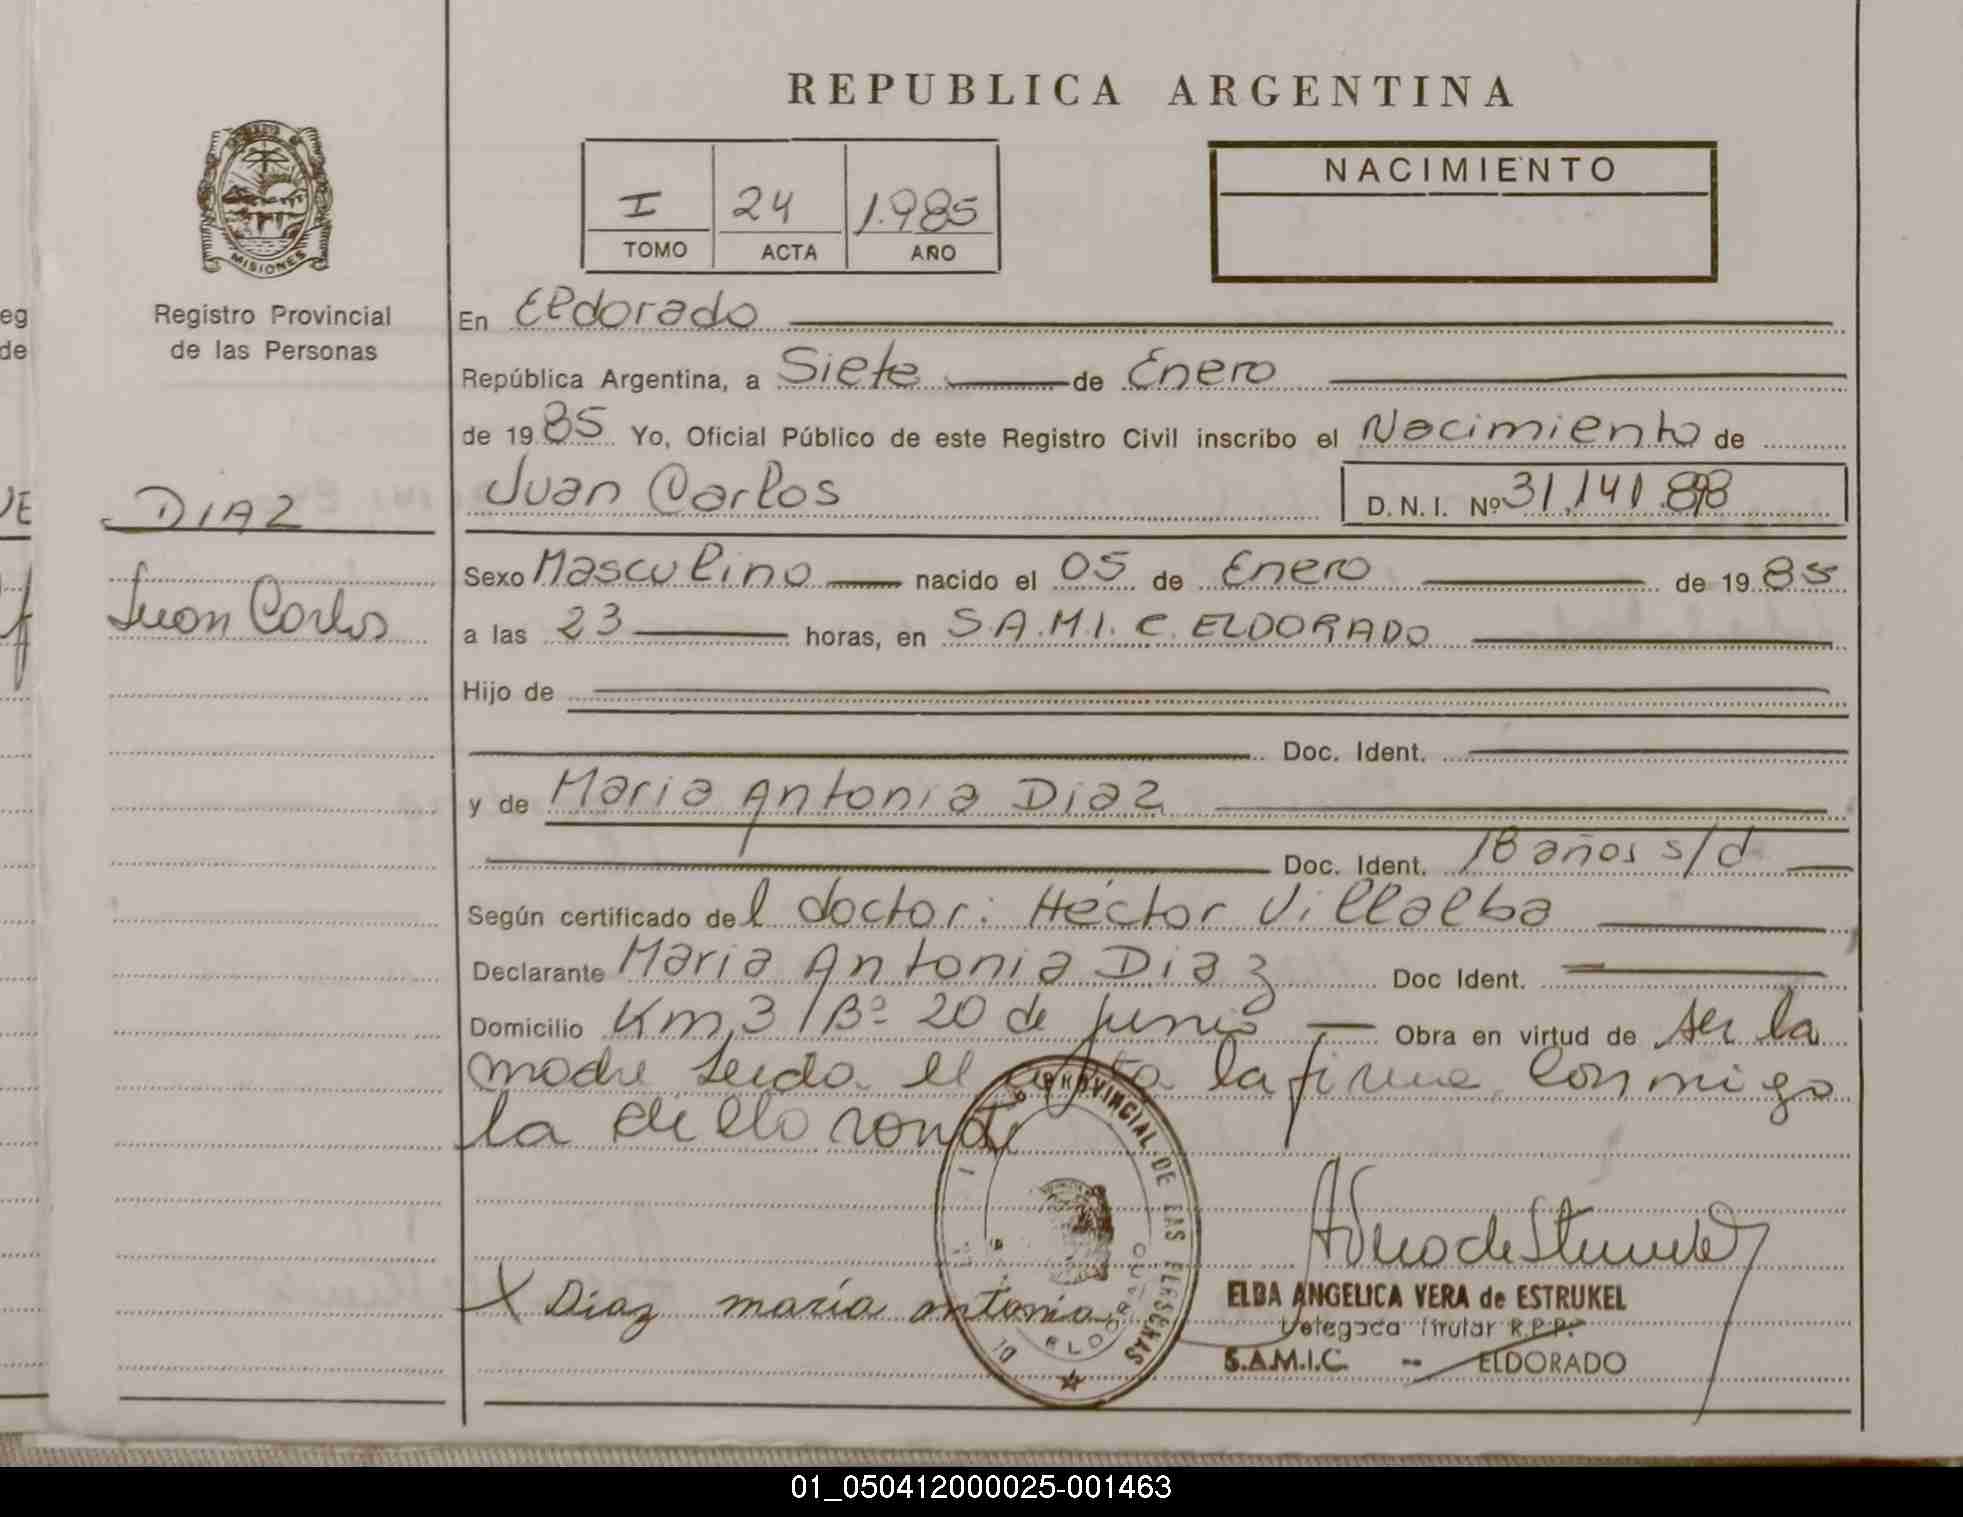 REPUBLICA ARGENTINA
NACIMIENTO
I 24 1.985
TOMO ACTA AÑO
MISIONES
Registro Provincial
de las Personas
eg
de
En Eldorado
República Argentina, a Siete de Enero
de 1985 Yo, Oficial Público de este Registro Civil inscribo el Nacimiento de
DIAZ
Juan Carlos D.N.I. Nº 31.141.898
Juan Carlos
Sexo Masculino nacido el 05 de Enero de 1985
a las 23 horas, en S.A.M.I.C. ELDORADO
Hijo de
Doc. Ident.
y de Maria Antonia Diaz
Doc. Ident. 18 años s/d
Según certificado del doctor: Héctor Villalba
Declarante Maria Antonia Diaz Doc Ident.
Domicilio Km, 3 / Bº 20 de junio Obra en virtud de ser la
madre Leida el acta la firma conmigo
la
PROVINCIAL DE LAS PERSONAS
ELDORADO
X Diaz maría antonia
ELBA ANGELICA VERA de ESTRUKEL
Delegada Titular R.P.P.
S.A.M.I.C. -- ELDORADO
01_050412000025-001463